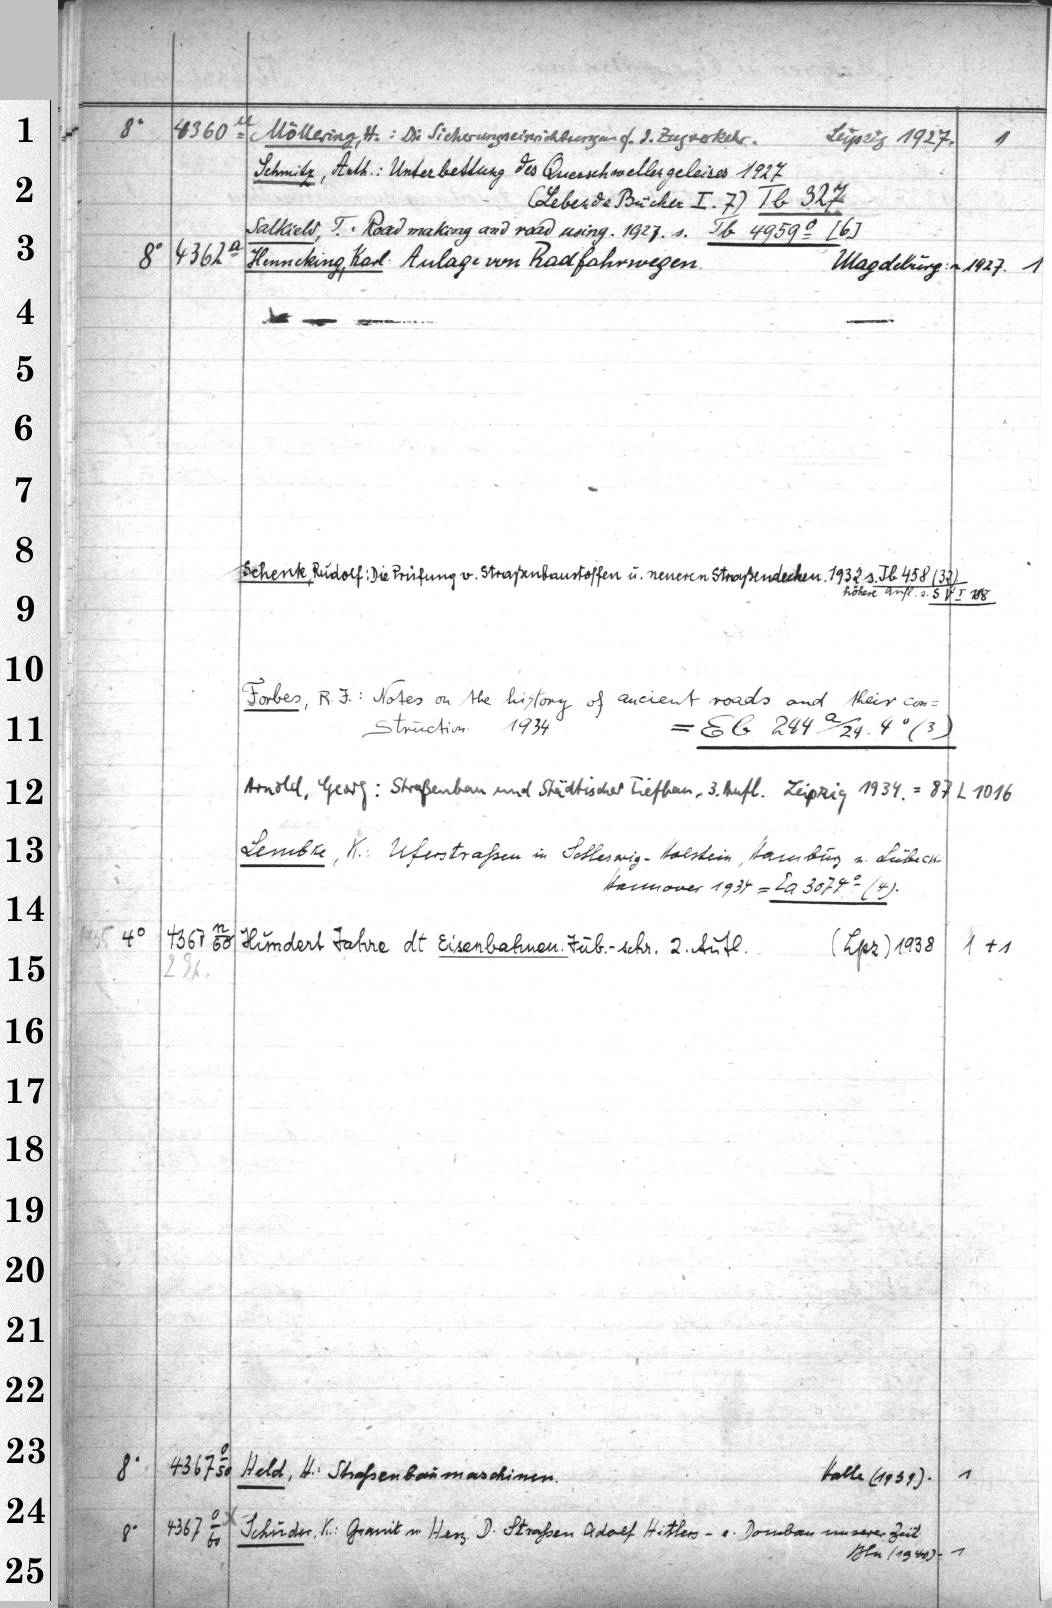 1
8° 4360 u Möllering, H.: Die Sicherungseinrichtungen f. d. Zugverkehr. Leipzig 1927. 1
Schmitz, Arth.: Unterbettung des Querschwellengeleises 1927
2
(Lebende Bücher I. 7) Tb 327
Salkield, T. Road making and road using. 1927. s. Tb 4959° [6]
3
8° 4362 a Henneking, Karl Anlage von Radfahrwegen. Magdeburg 1927. 1
4
5
6
7
8
Schenk, Rudolf: Die Prüfung v. Straßenbaustoffen u. neueren Straßendecken. 1932 s. Tb 458 (32)
höhere Aufl. s. S V I
9
10
Forbes, R. J.: Notes on the history of ancient roads and their con=
11
struction 1934 = Eb 244 a/24. 4° (3)
12
Arnold, Georg: Straßenbau und Städtischer Tiefbau, 3. Aufl. Leipzig 1934. = 87 L 1016
13
Lembke, K.: Uferstraßen in Schleswig-Holstein, Hamburg u. Lübeck
Hannover 1934 = Ea 3074° (4).
14
4° 4367 n/60 Hundert Jahre dt Eisenbahnen. Jub.-schr. 2. Aufl. (Lpz) 1938 1 + 1
15
16
17
18
19
20
21
22
23
8° 4367 o/50 Held, H.: Straßenbaumaschinen. Halle (1939). 1
24
8° 4367 o/60 Schuder, K.: Granit u Herz D. Straßen Adolf Hitlers - e. Dombau unserer Zeit
Bln (1940) - 1
25